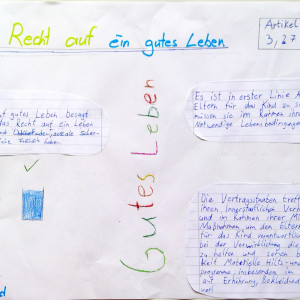 Recht auf ein gutes Leben
Artikel
3, 27
gutes Leben besagt
das Recht auf ein Leben
und
Es ist in erster Linie A
Eltern für das Kind zu s
müssen sie im Rahmen ihrer
Notwendige Lebensbedingungen
Gutes Leben
Die Vertragsstaaten treff
ihren innerstaatlichen Verh
und im Rahmen ihrer Mi
Maßnahmen, um den Eltern
für das Kind verantwortlich
bei der Verwirklichung die
zu helfen und sehen be
keit Materielle Hilfs- und
programme, insbesondere im
auf Ernährung, Bekleidung
vor.
d